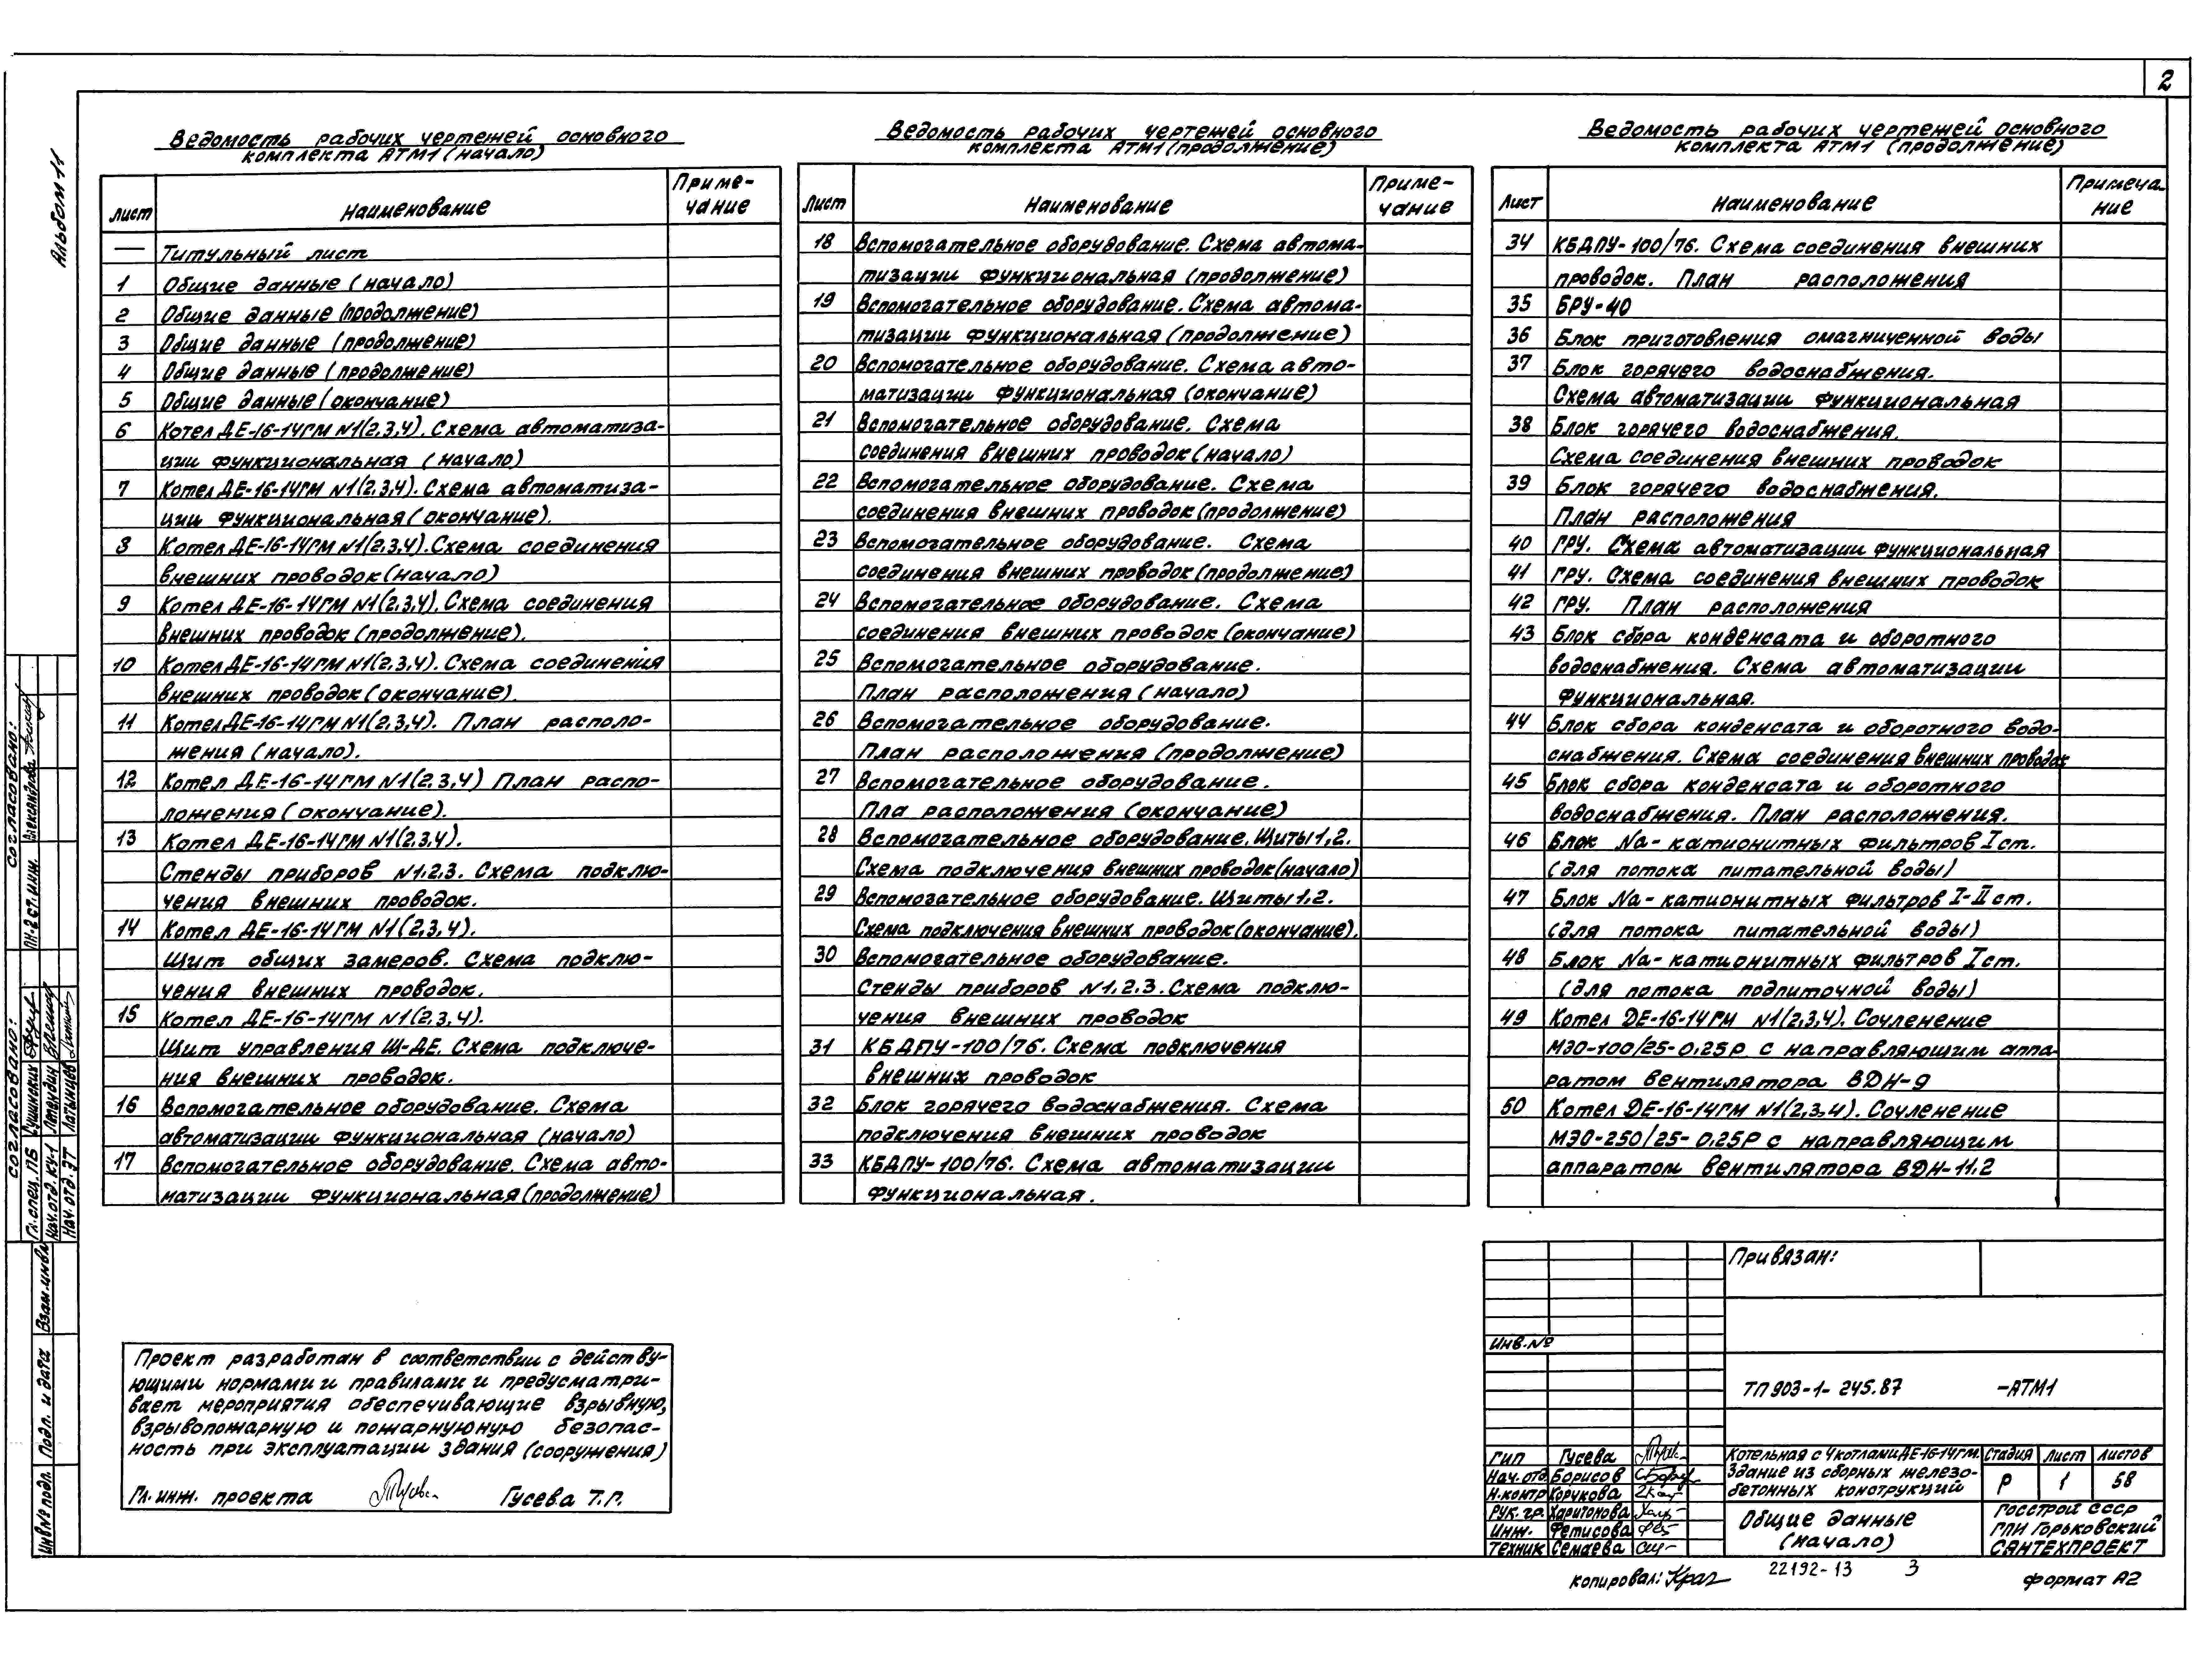 2
Альбом 11
Ведомость рабочих чертежей основного
комплекта АТМ1 (начало)
Лист
Наименование
Приме-
чание
— Титульный лист
1 Общие данные (начало)
2 Общие данные (продолжение)
3 Общие данные (продолжение)
4 Общие данные (продолжение)
5 Общие данные (окончание)
6 Котел ДЕ-16-14ГМ N1(2,3,4). Схема автоматиза-
ции функциональная (начало)
7 Котел ДЕ-16-14ГМ N1(2,3,4). Схема автоматиза-
ции функциональная (окончание).
8 Котел ДЕ-16-14ГМ N1(2,3,4). Схема соединения
внешних проводок (начало)
9 Котел ДЕ-16-14ГМ N1(2,3,4). Схема соединения
внешних проводок (продолжение).
10 Котел ДЕ-16-14ГМ N1(2,3,4). Схема соединения
внешних проводок (окончание).
11 Котел ДЕ-16-14ГМ N1(2,3,4). План располо-
жения (начало).
12 Котел ДЕ-16-14ГМ N1(2,3,4) План распо-
ложения (окончание).
13 Котел ДЕ-16-14ГМ N1(2,3,4).
Стенды приборов N1.2.3. Схема подклю-
чения внешних проводок.
14 Котел ДЕ-16-14ГМ N1(2,3,4).
Щит общих замеров. Схема подклю-
чения внешних проводок.
15 Котел ДЕ-16-14ГМ N1(2,3,4).
Щит управления Щ-ДЕ. Схема подключе-
ния внешних проводок.
16 Вспомогательное оборудование. Схема
автоматизации функциональная (начало)
17 Вспомогательное оборудование. Схема авто-
матизации функциональная (продолжение)
Ведомость рабочих чертежей основного
комплекта АТМ1 (продолжение)
Лист
Наименование
Приме-
чание
18 Вспомогательное оборудование. Схема автома-
тизации функциональная (продолжение)
19 Вспомогательное оборудование. Схема автома-
тизации функциональная (продолжение)
20 Вспомогательное оборудование. Схема авто-
матизации функциональная (окончание)
21 Вспомогательное оборудование. Схема
соединения внешних проводок (начало)
22 Вспомогательное оборудование. Схема
соединения внешних проводок (продолжение)
23 Вспомогательное оборудование. Схема
соединения внешних проводок (продолжение)
24 Вспомогательное оборудование. Схема
соединения внешних проводок (окончание)
25 Вспомогательное оборудование.
План расположения (начало)
26 Вспомогательное оборудование.
План расположения (продолжение)
27 Вспомогательное оборудование.
Пла расположения (окончание)
28 Вспомогательное оборудование. Щиты 1, 2.
Схема подключения внешних проводок (начало)
29 Вспомогательное оборудование. Щиты 1, 2.
Схема подключения внешних проводок (окончание).
30 Вспомогательное оборудование.
Стенды приборов N1. 2. 3. Схема подклю-
чения внешних проводок
31 КБДПУ-100/76. Схема подключения
внешних проводок
32 Блок горячего водоснабжения. Схема
подключения внешних проводок
33 КБДПУ-100/76. Схема автоматизации
функциональная.
Ведомость рабочих чертежей основного
комплекта АТМ1 (продолжение)
Лист
Наименование
Примеча-
ние
34 КБДПУ-100/76. Схема соединения внешних
проводок. План расположения
35 БРУ-40
36 Блок приготовления омагниченной воды
37 Блок горячего водоснабжения.
Схема автоматизации функциональная
38 Блок горячего водоснабжения.
Схема соединения внешних проводок
39 Блок горячего водоснабжения.
План расположения
40 ГРУ. Схема автоматизации функциональная
41 ГРУ. Схема соединения внешних проводок
42 ГРУ. План расположения
43 Блок сбора конденсата и оборотного
водоснабжения. Схема автоматизации
функциональная.
44 Блок сбора конденсата и оборотного водо-
снабжения. Схема соединения внешних проводок
45 Блок сбора конденсата и оборотного
водоснабжения. План расположения.
46 Блок Na-катионитных фильтров I ст.
(для потока питательной воды)
47 Блок Na-катионитных фильтров I-II ст.
(для потока питательной воды)
48 Блок Na-катионитных фильтров I ст.
(для потока подпиточной воды)
49 Котел ДЕ-16-14ГМ N1(2,3,4). Сочленение
МЭО-100/25-0.25Р с направляющим аппа-
ратом вентилятора ВДН-9
50 Котел ДЕ-16-14ГМ N1(2,3,4). Сочленение
МЭО-250/25-0.25Р с направляющим
аппаратом вентилятора ВДН-11.2
Согласовано:
ПН-2 ст. инж. Александрова
Согласовано:
Гл. спец. ПБ Сушинских
Нач. отд. КУ-1
Нач. отд. ЭТ Латынцев
Взам. инв №
Подп. и дата
Инв № подл.
Проект разработан в соответствии с действу-
ющими нормами и правилами и предусматри-
вает мероприятия обеспечивающие взрывную,
взрывопожарную и пожарнуюную безопас-
ность при эксплуатации здания (сооружения)
Гл. инж. проекта Гусева Т.Г.
Привязан:
Инв. №
ТП 903-1-245.87 -АТМ1
ГИП Гусева
Нач. отд. Борисов
Н. контр Корчкова
Рук. гр. Харитонова
Инж. Фетисова
Техник Семаева
Котельная с 4 котлами ДЕ-16-14ГМ.
Здание из сборных железо-
бетонных конструкций
Стадия Лист Листов
Р 1 58
Общие данные
(начало)
Госстрой СССР
ГПИ Горьковский
САНТЕХПРОЕКТ
Копировал:
22192-13 3
Формат А2